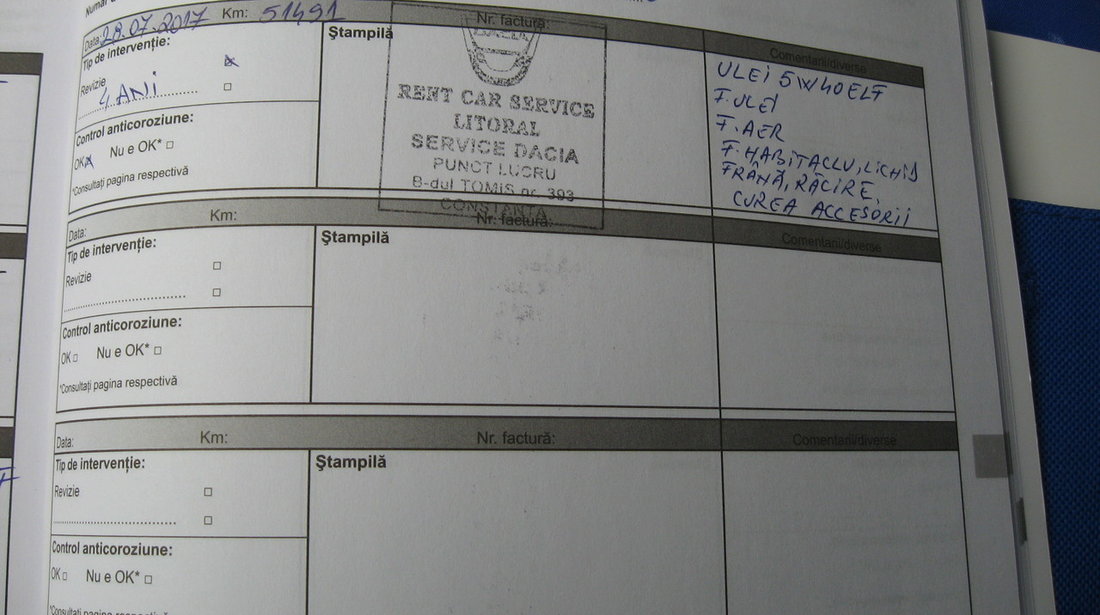 Data: 28.07.2017 Km: 51491 Nr. factură:
Tip de intervenție:
Revizie
4 ANI
Control anticoroziune:
OK Nu e OK*
*Consultați pagina respectivă
Ștampilă
DACIA
RENT CAR SERVICE
LITORAL
SERVICE DACIA
PUNCT LUCRU
B-dul TOMIS nr. 393
CONSTANTA
Comentarii/diverse
ULEI 5W40 ELF
F. ULEI
F. AER
F. HABITACLU, LICHID
FRÂNĂ, RĂCIRE,
CUREA ACCESORII
Data: Km: Nr. factură:
Tip de intervenție:
Revizie
Control anticoroziune:
OK Nu e OK*
*Consultați pagina respectivă
Ștampilă
Comentarii/diverse
Data: Km: Nr. factură:
Tip de intervenție:
Revizie
Control anticoroziune:
OK Nu e OK*
*Consultați pagina respectivă
Ștampilă
Comentarii/diverse